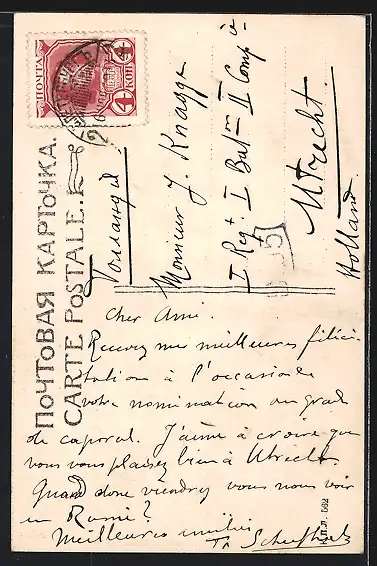 ПОЧТОВАЯ КАРТОЧКА.
CARTE POSTALE.
ПОЧТА
4 КОП 4
Голландія
Monsieur J. Knagge
I Regt I Batn II Compie
Utrecht.
Holland.
Cher Ami.
Recevez mes meilleures félici-
tations à l'occasion de
votre nomination au grade
de caporal. J'aime à croire que
vous vous plaisez bien à Utrecht.
Quand donc viendrez vous nous voir
en Russie?
Meilleures amitiés
К.П.Л. 562